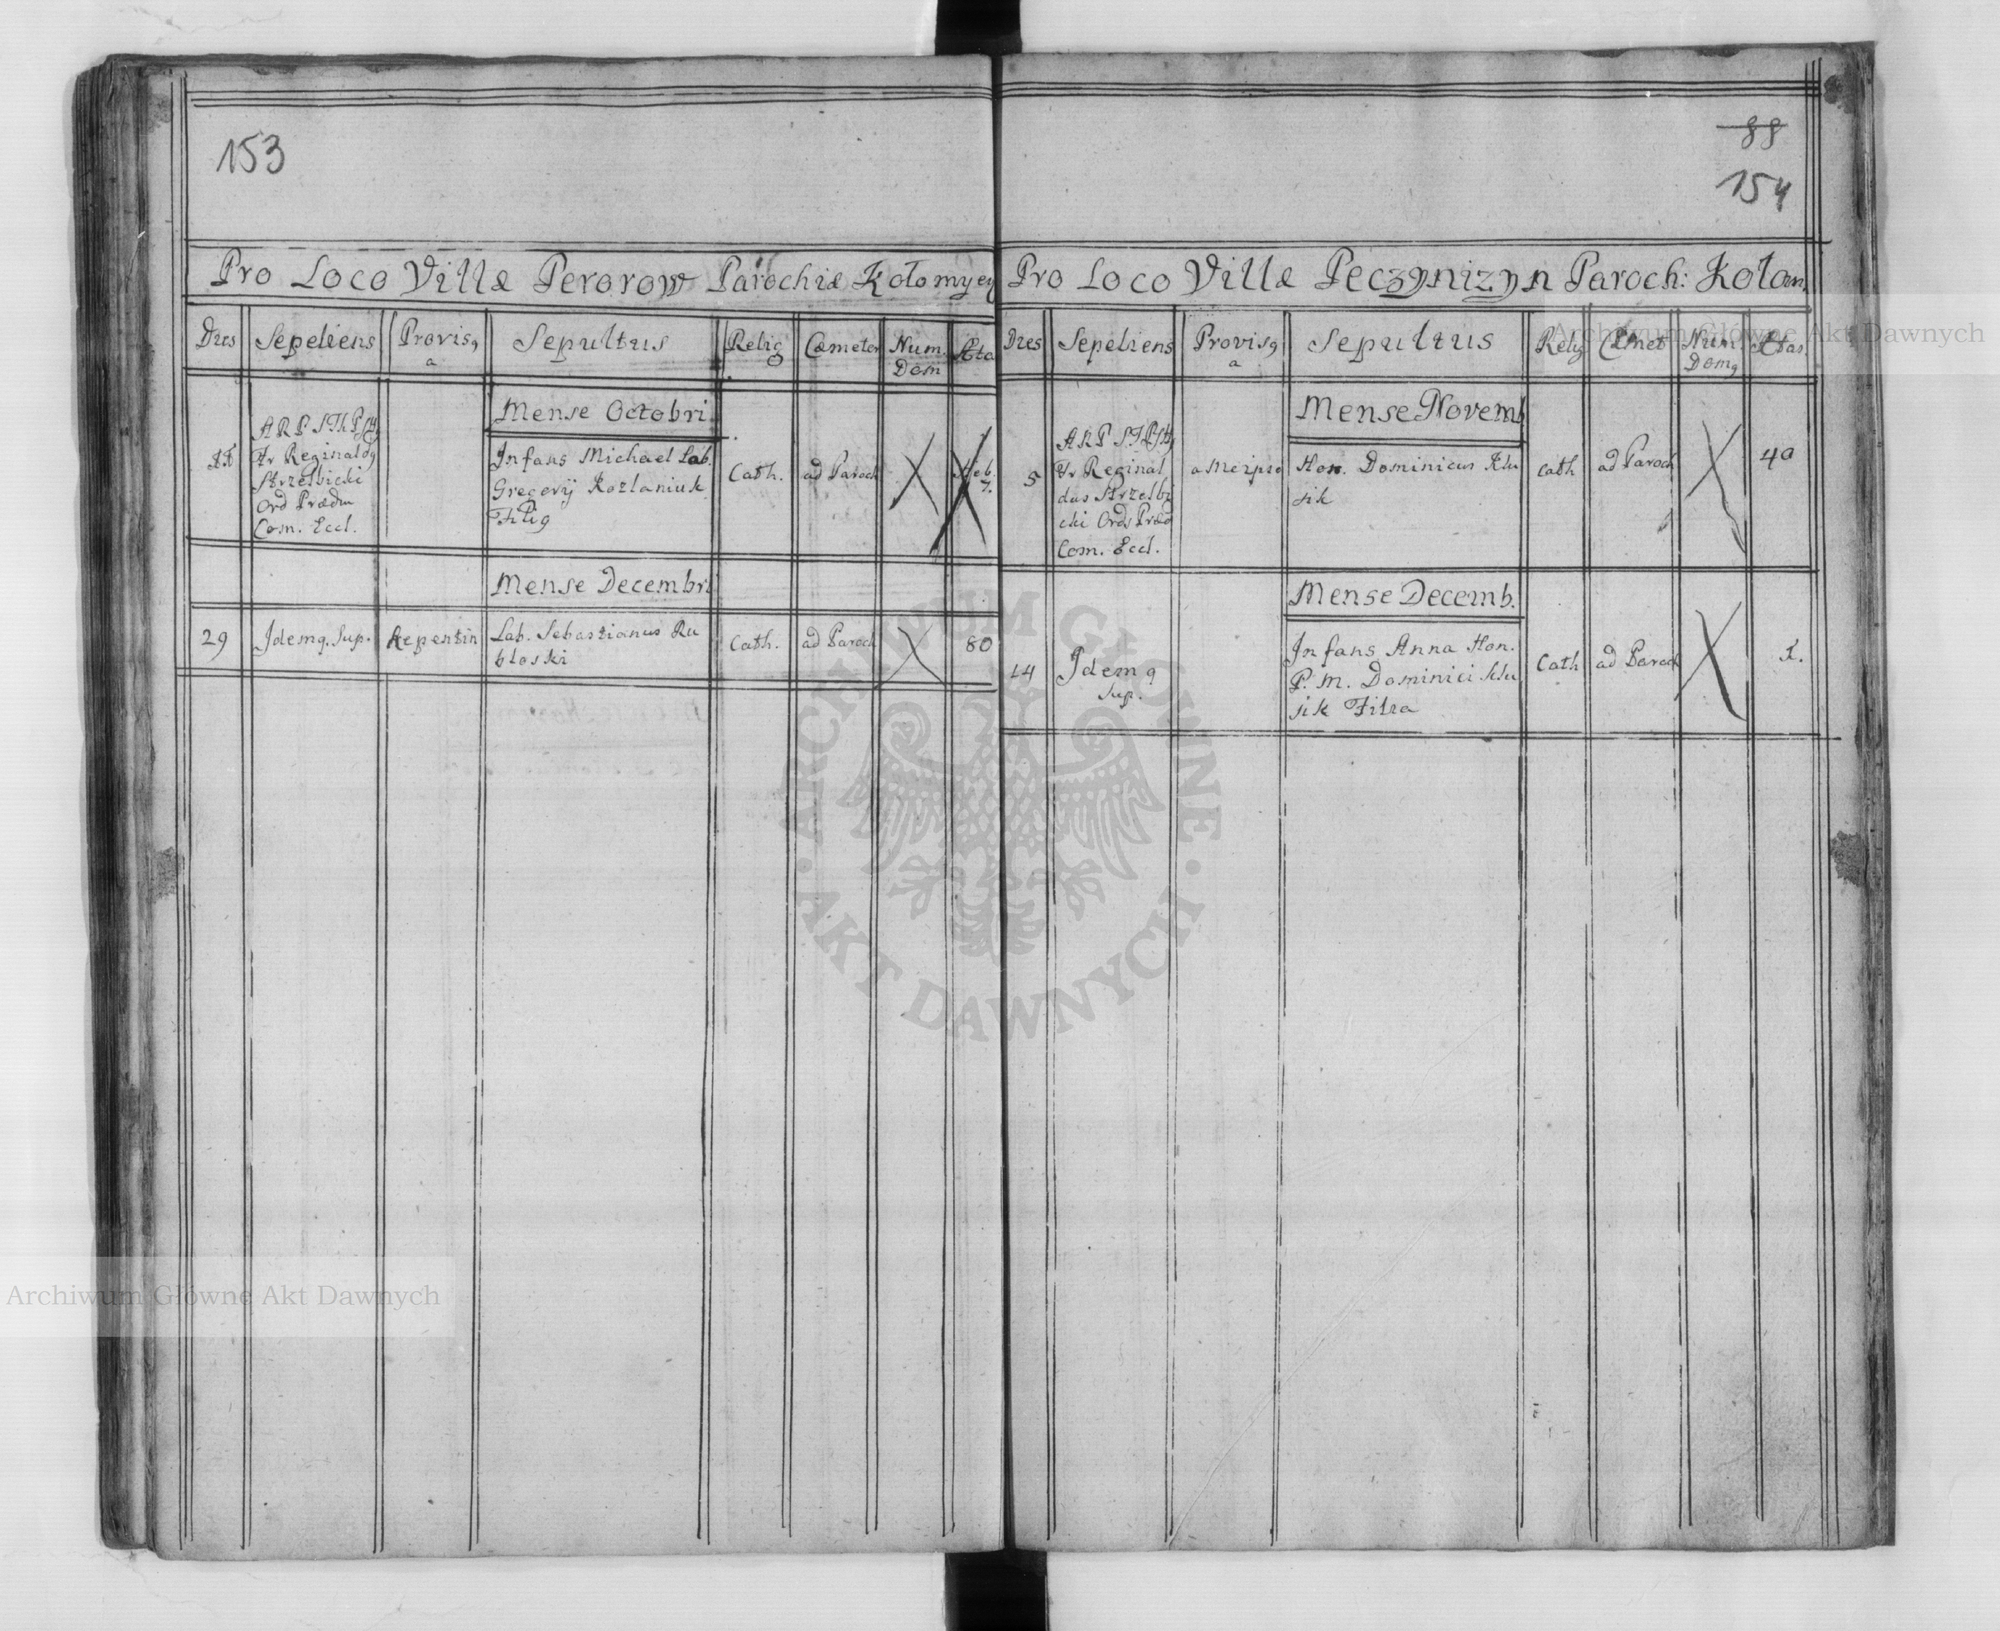 153
Pro Loco Villæ Pererow Parochiæ Kołomyey
Dies Sepeliens Provisq a Sepultus Relig Cæmeter Num. Dom Æta
Mense Octobri
ARP STh
Fr Reginaldq
Strzelbicki
Ord Prædm
Com. Eccl.
Infans Michael Lab.
Gregorij Kozlaniuk
Filiq
Cath. ad Paroch
Mense Decembri
29 Idemq. Sup. Repentin Lab. Sebastianus Ru
bloski
Cath. ad Paroch 80
88
154
Pro Loco Villæ Peczynizyn Paroch: Kołom.
Dies Sepeliens Provisq a Sepultus Relig Cæmet Num Domq Ætas.
Mense Novemb
5 ARP
Fr Reginal
dus Strzelbi
cki Ords Præd
Com. Eccl.
a Meipso
Hon. Dominicus Klu
sik
Cath ad Paroch 40
Mense Decemb.
14 Idemq
Sup.
Infans Anna Hon.
P. M. Dominici Klu
sik Filia
Cath ad Paroch 1.
Archiwum Główne Akt Dawnych
ARCHIWUM GŁÓWNE
AKT DAWNYCH
Archiwum Główne Akt Dawnych